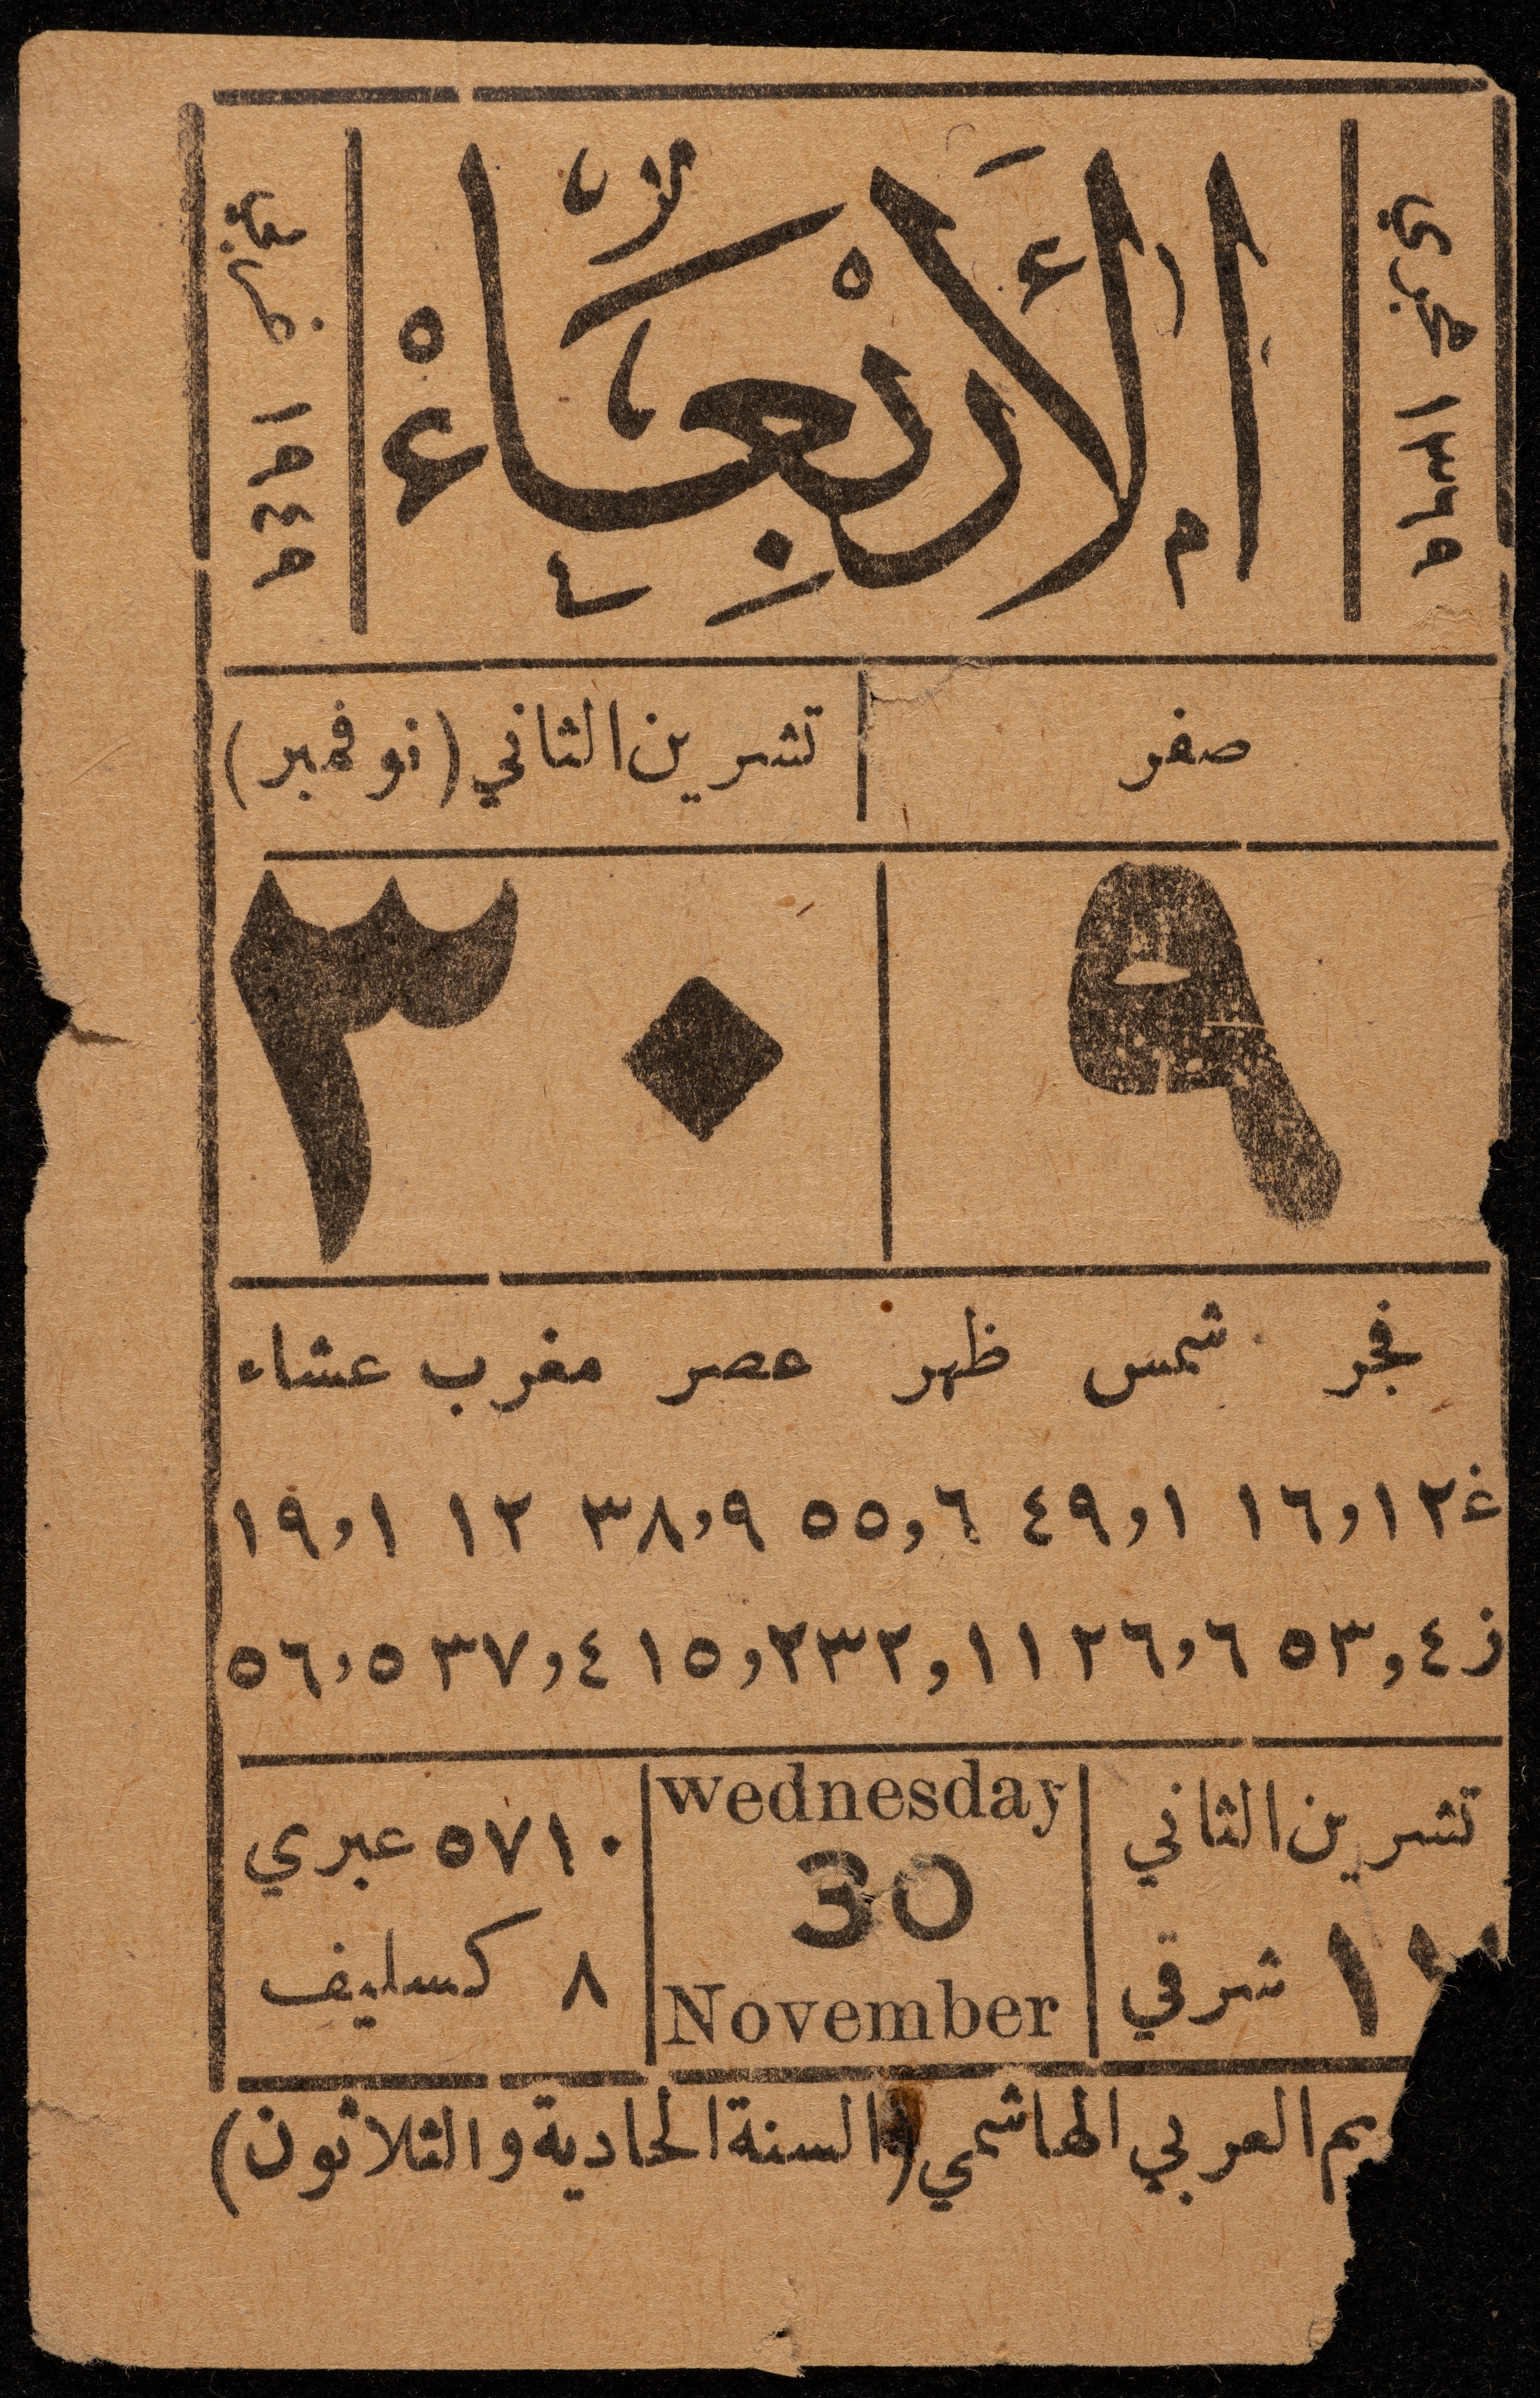 ١٣٦٩ هجري
اَلْأَرْبِعَاءْ
١٩٤٩ غربي
صفر
تشرين الثاني (نوفمبر)
٩
٣٠
فجر شمس ظهر عصر مغرب عشاء
غ ١٦,١٢ ٤٩,١ ٥٥,٦ ٣٨,٩ ١٢ ١٩,١
ز ٥٣,٤ ٢٦,٦ ٣٢,١١ ١٥,٢ ٣٧,٤ ٥٦,٥
تشرين الثاني
شرقي
Wednesday
30
November
٥٧١٠ عبري
٨ كسليف
العربي الهاشمي (السنة الحادية والثلاثون)